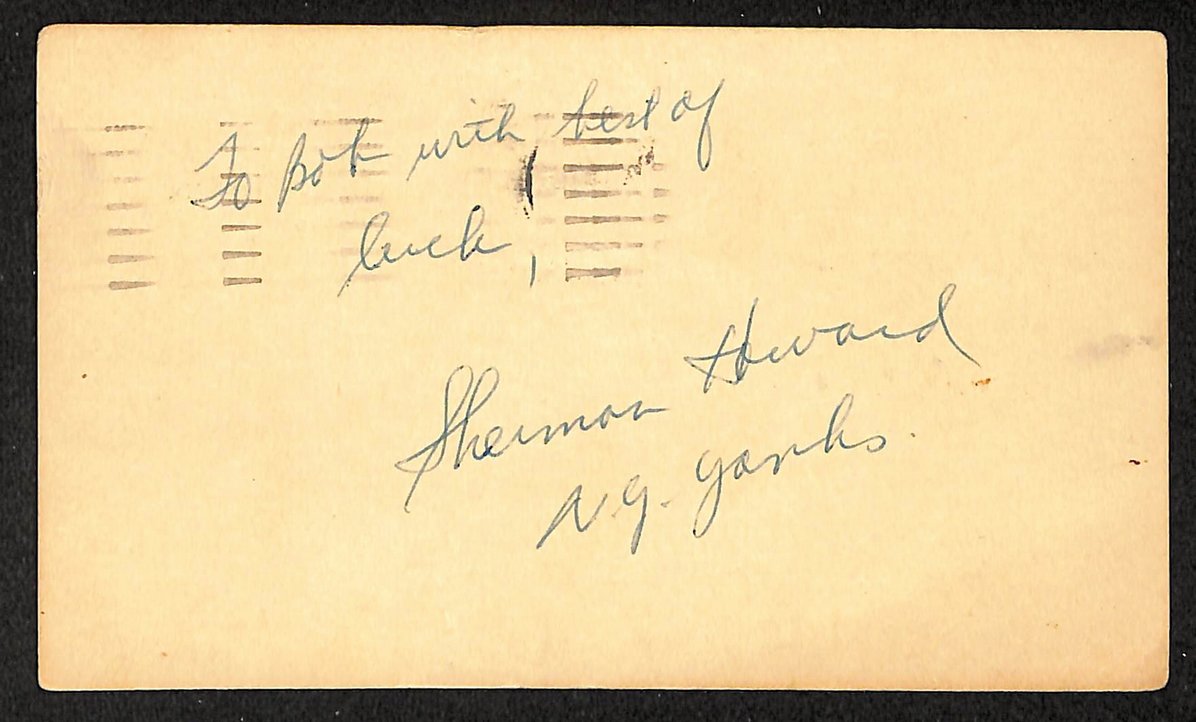 To Bob with best of
luck,
Sherman Howard
N.Y. Yanks.